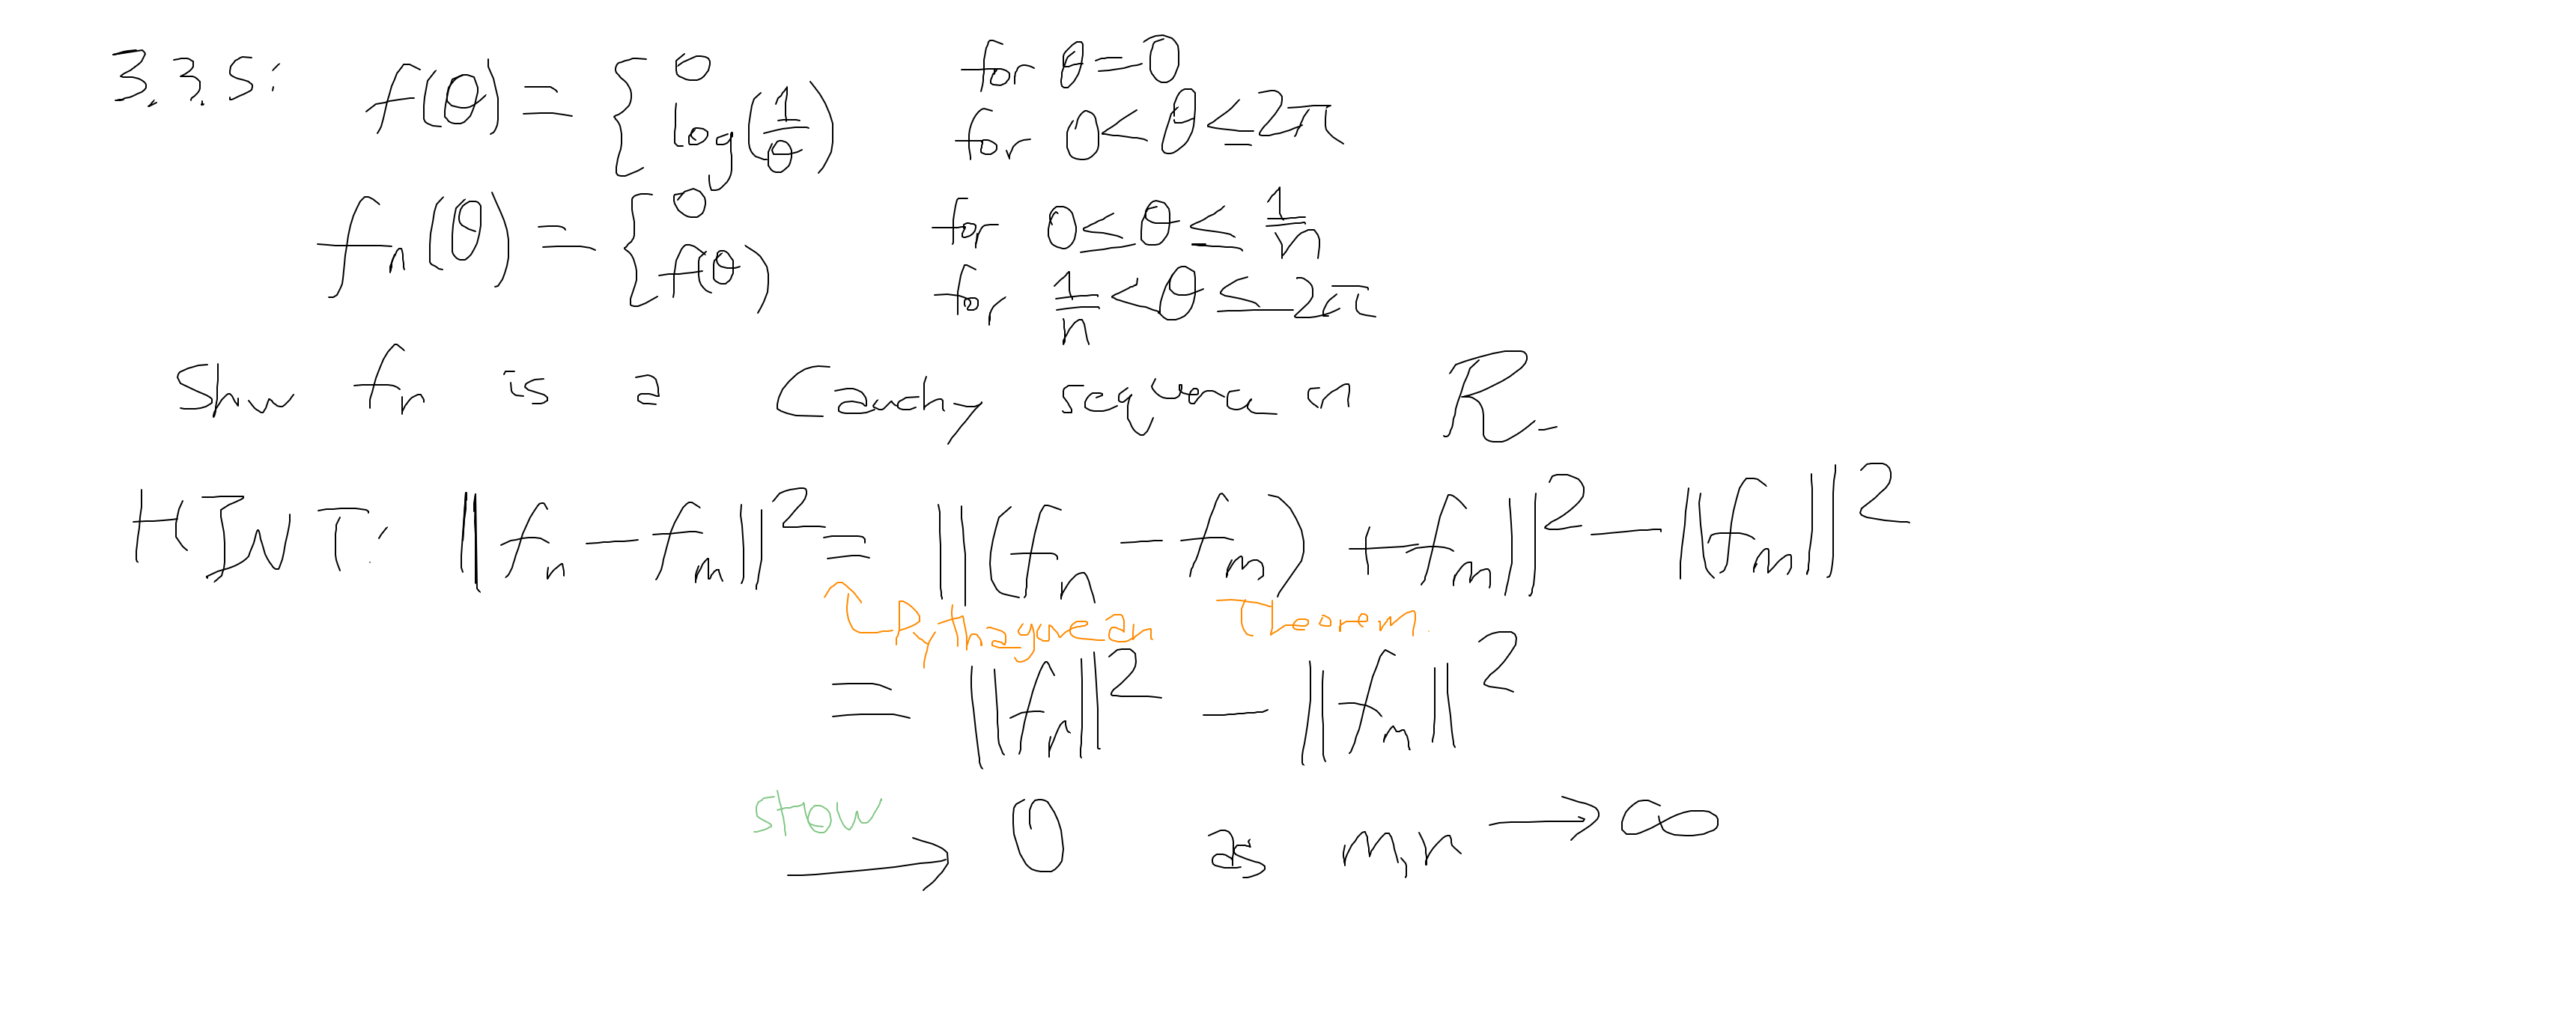 3.3.5: f(θ) = { 0 for θ=0
log(1/θ) for 0<θ≤2π
fₙ(θ) = { 0 for 0≤θ≤1/n
f(θ) for 1/n<θ≤2π
Show fₙ is a Cauchy sequence in R.
HINT: ||fₙ - fₘ||² = ||(fₙ - fₘ) + fₘ||² - ||fₘ||²
Pythagorean Theorem.
= ||fₙ||² - ||fₘ||²
show
→ 0 as m,n → ∞